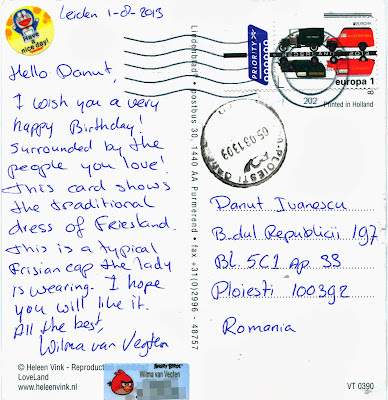 Leiden 1-8-2013
Have a nice day!
Hello Danut,
I wish you a very
happy Birthday!
Surrounded by the
people you love!
This card shows
the traditional
dress of Friesland.
This is a typical
Frisian cap the lady
is wearing. I hope
you will like it.
All the best,
Wilma van Vegten
PRIORITY
NEDERLAND 2013
europa 1
Printed in Holland
PLOIESTI
postbus 30, 1440 AA Purmerend • fax +31(0)2996 - 48757
Danut Ivanescu
B-dul Republicii 197
Bl. 5C1 Ap 33
Ploiesti 100392
Romania
© Heleen Vink - Reproduct
LoveLand
www.heleenvink.nl
ANGRY BIRDS
Wilma van Vegten
VT 0390